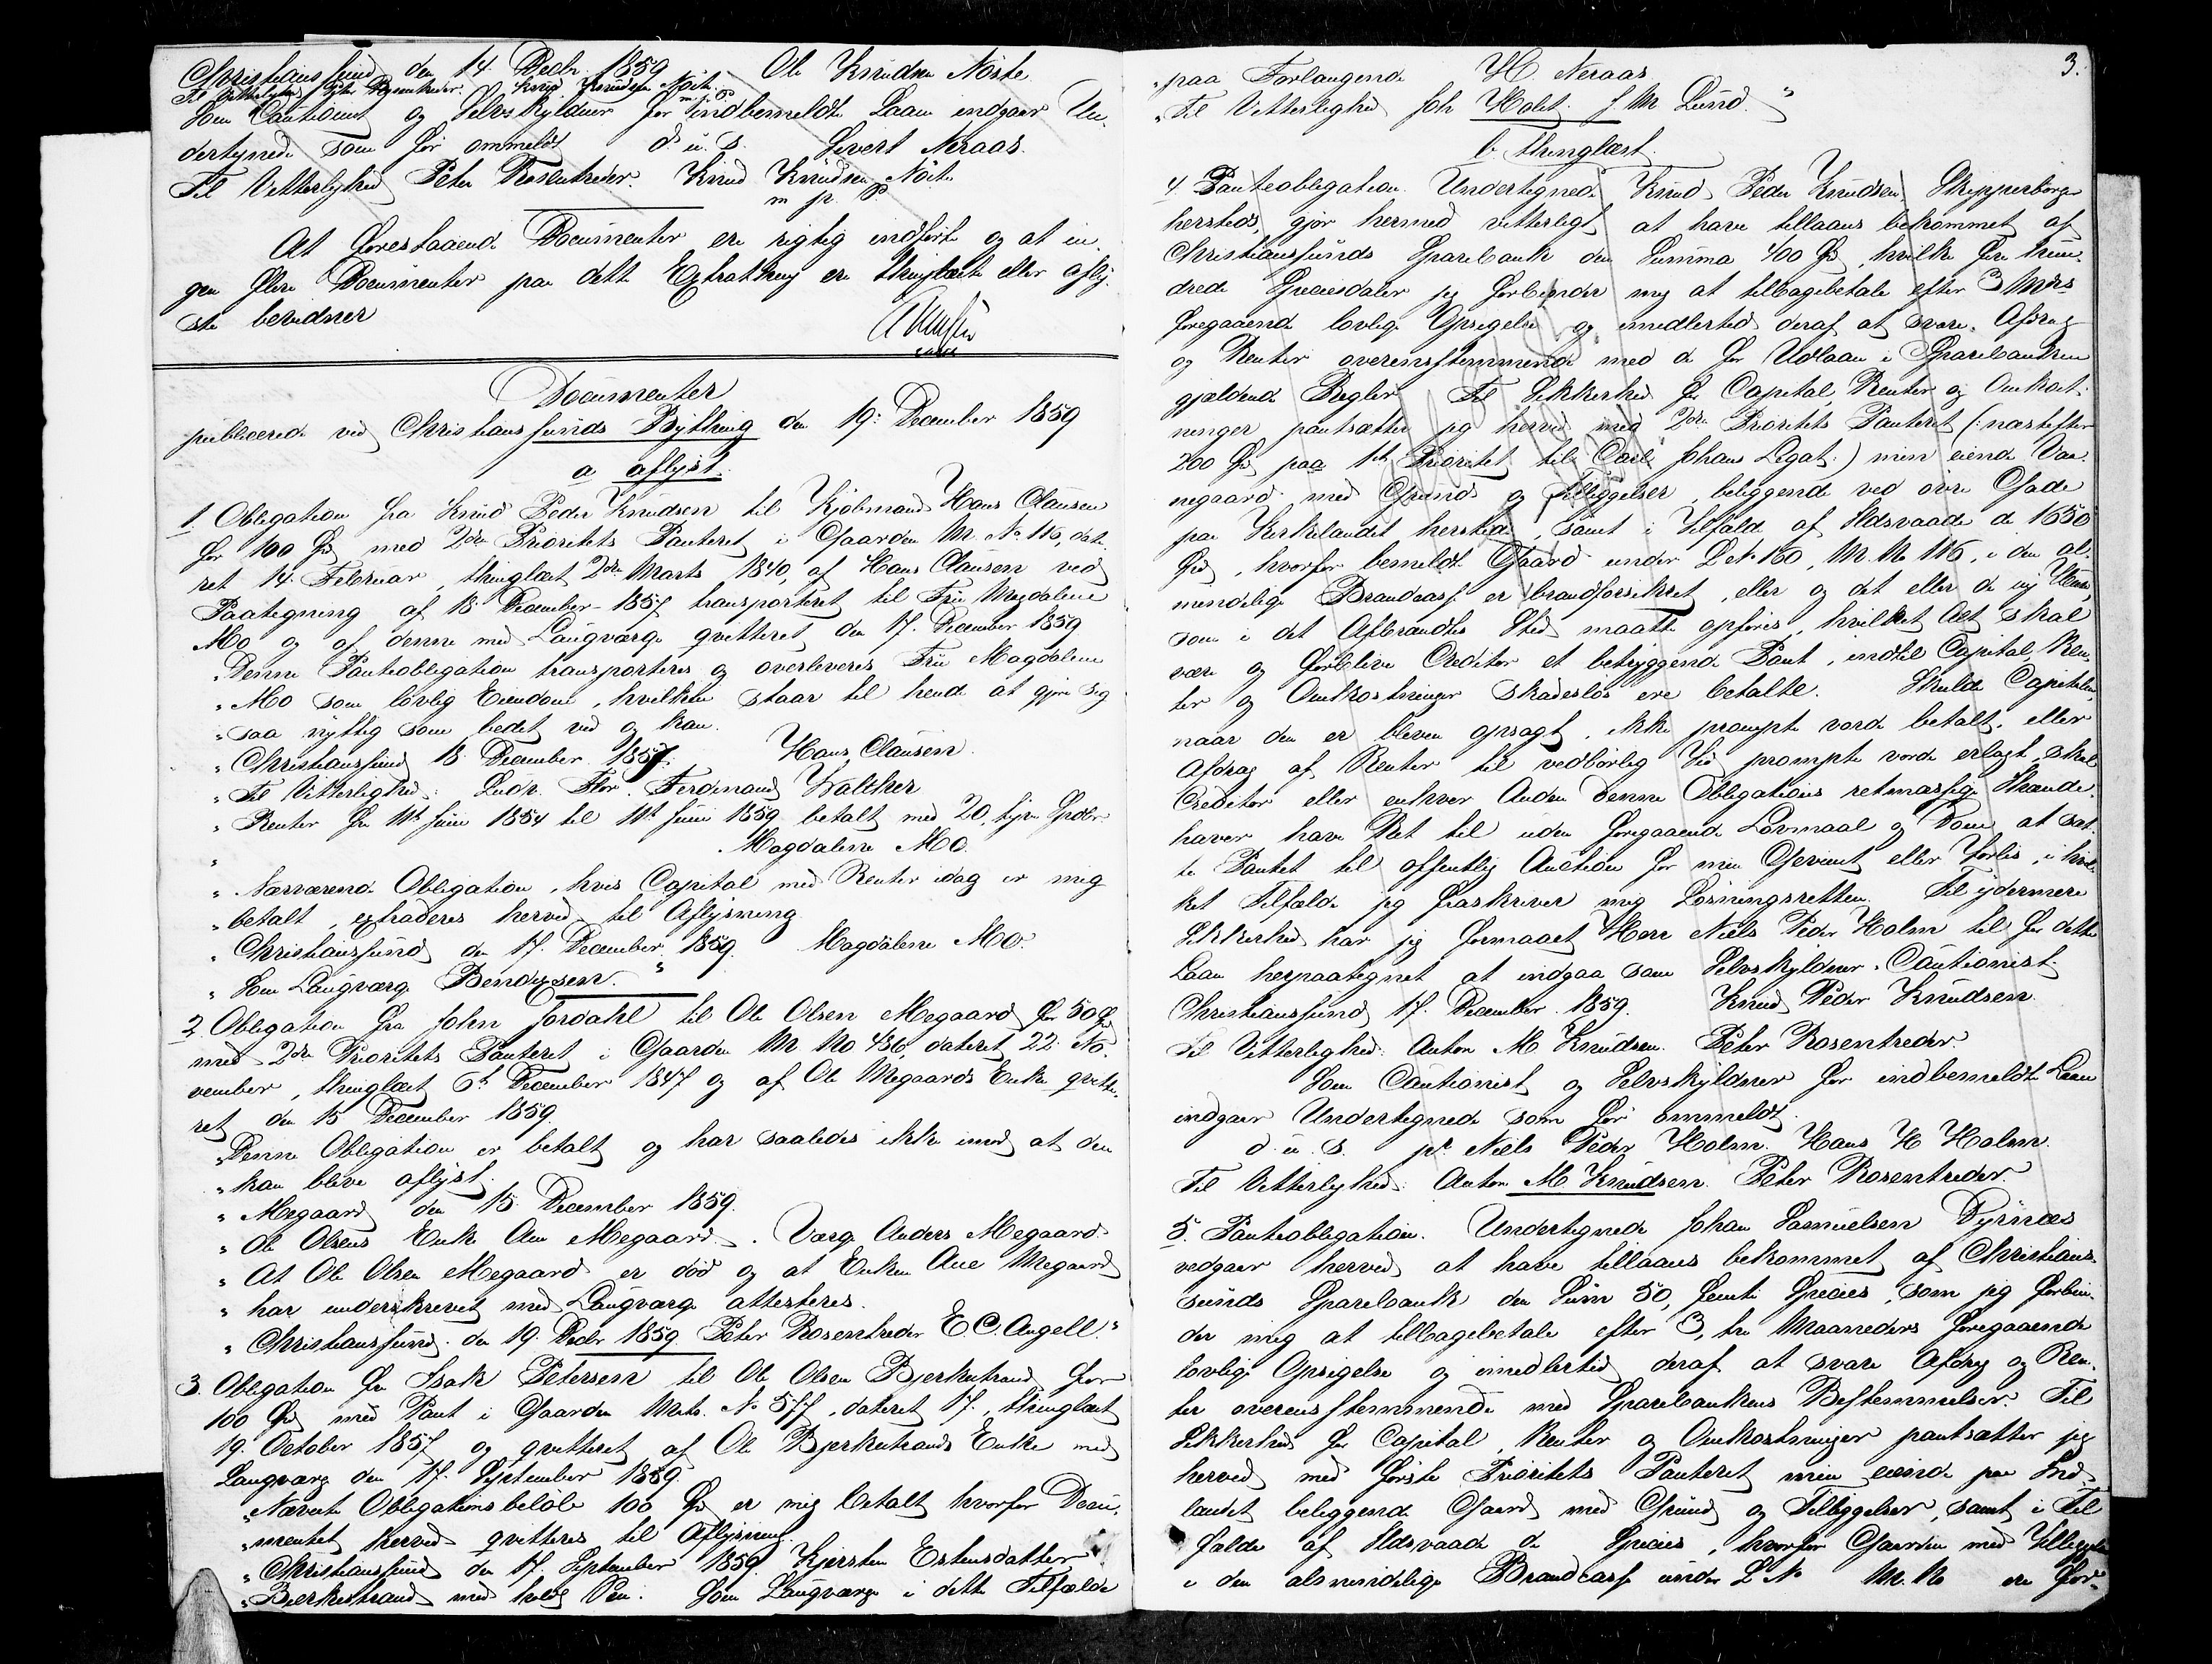 Christiansund den 14 Decbr 1859. Ole Knudsen Nöste
Til Vitterlighed Peter Rosentreder. Knud Knudsen Nöste
m. p. P.
Som Cautionist og Selvskyldner for indbemeldte Laan indgaar Un-
dertegnede som før ommeldt d. u. S. Sivert Neraas.
Til Vitterlighed Peter Rosentreder. Knud Knudsen Nöste
m p. P
At forestaaende Documenter ere rigtig indførte og at in-
gen flere Documenter paa dette Extrathing ere thinglæste eller afly-
ste bevidner
Documenter
publicerede ved Christiansunds Bything den 19. December 1859
a aflyst.
1. Obligation fra Knud Peder Knudsen til Kjøbmand Hans Clausen
for 100 Spd med 2den Prioritets Panteret i Gaarden M. No 116, date-
ret 14. Februar, thinglæst 2den Marts 1840, af Hans Clausen ved
Paategning af 18 December 1857 transporteret til Fru Magdalene
Mo og af denne med Laugværge qvitteret den 17. December 1859
"Denne Panteobligation transporteres og overleveres Fru Magdalene
"Mo som lovlig Eiendom, hvilken staar til hende at gjøre sig
"saa nyttig som bedst ved og kan.
"Christiansund 18 December 1857. Hans Clausen.
"Til Vitterlighed: Ludv. Flor. Ferdinand Walther
"Renter fra 11te Juni 1854 til 11te Juni 1859 betalt med 20, tyve Spdlr
" Magdalene Mo.
"Nærværende Obligation, hvis Capital med Renter idag er mig
"betalt, extraderes herved til Aflysning.
"Christiansund den 17. December 1859. Magdalene Mo.
"Som Laugværge Bendixsen."
2. Obligation fra John Jordahl til Ole Olsen Megaard for 50 Spd
med 2den Prioritets Panteret i Gaarden M No 436, dateret 22 No-
vember, thinglæst 6te December 1847 og af Ole Megaards Enke qvitte-
ret den 15 December 1859.
"Denne Obligation er betalt og har saaledes ikke imod at den
"kan blive aflyst.
"Megaard den 15 December 1859.
"Ole Olsens Enke Ane Megaard. Værge Anders Megaard.
"At Ole Olsen Megaard er død og at Enken Ane Megaard
"har underskrevet med Laugværge attesteres.
"Christiansund den 19. Decbr 1859. Peter Rosentreder E C. Angell."
3. Obligation fra Isak Petersen til Ole Olsen Bjerkestrand for
100 Spd med Pant i Gaarden Matr. No 577, dateret 17., thinglæst
19. October 1857 og qvitteret af Ole Bjerkestrands Enke med
Laugværge den 17. September 1859.
"Nævnte Obligations beløb 100 Spd er mig betalt hvorfor Docu-
"mentet herved qvitteres til Aflysning.
"Christiansund den 17. September 1859. Kjersten Estensdatter
"Bjerkestrand med holdt Pen. Som Laugværge i dette Tilfælde
3.
"paa Forlangende H. Neraas
"Til Vitterlighed Joh Holst. J. M Lund."
b. thinglæst.
4 Panteobligation. Undertegnede Knud Peder Knudsen, Skipperborger
hersteds, gjør hermed vitterligt at have tillaans bekommet af
Christiansunds Sparebank den Summa 400 Spd, hvilke fire hun-
drede Speciesdaler jeg forbinder mig at tilbagebetale efter 3 Mdrs
foregaaende lovlige Opsigelse og imedlertid deraf at svare Afdrag
og Renter overensstemmende med de for Udlaan i Sparebanken
gjældende Regler. Til Sikkerhed for Capital, Renter og Omkost-
ninger pantsætter jeg herved med 2den Prioritets Panteret (: næstefter
200 Spd paa 1ste Prioritet til Carl Johans Legat :) min eiende Vaa-
negaard med Grund og Tilliggelser, beliggende ved øvre Gade
paa Kirkelandet hersteds, samt i Tilfælde af Ildsvaade de 1650
Spd, hvorfor bemeldte Gaard under L No 160, M. No 116, i den al-
mindelige Brandcasse er brandforsikret, eller og det eller de ny Huse,
som i det Afbrændtes Sted maatte opføres, hvilket Alt skal
være og forblive Creditor et betryggende Pant, indtil Capital, Ren-
ter og Omkostninger skadesløs ere betalte. Skulde Capitalen,
naar den er bleven opsagt, ikke prompte vorde betalt, eller
Afdrag af Renter til vedbørlig Tid prompte vorde erlagt, skal
Creditor eller enhver Anden denne Obligations retmæssige Ihænde-
haver have Ret til uden foregaaende Lovmaal og Dom at sæt-
te Pantet til offentlig Auction for min Gevinst eller Forlis, i hvil-
ket Tilfælde jeg fraskriver mig Løsningsretten. Til ydermere
Sikkerhed har jeg formaaet Herr Niels Peder Holm til for dette
Laan herpaategnet at indgaa som Selvskyldner-Cautionist.
Christiansund 17. December 1859. Knud Peder Knudsen.
Til Vitterlighed: Anton M Knudsen. Peter Rosentreder.
Som Cautionist og Selvskyldner for indbemeldte Laan
indgaar Undertegnede som før ommeldt.
d. u. S. pr Niels Peder Holm. Hans H Holm.
Til Vitterlighed: Anton M Knudsen. Peter Rosentreder.
5. Panteobligation. Undertegnede Johan Samuelsen Dyrnæs
vedgaar herved at have tillaans bekommet af Christian-
sunds Sparebank den Sum 50, femti Species, som jeg forbin-
der mig at tilbagebetale efter 3, tre Maaneders foregaaende
lovlige Opsigelse og imedlertid deraf at svare Afdrag og Ren-
ter overensstemmende med Sparebankens Bestemmelser. Til
Sikkerhed for Capital, Renter og Omkostninger pantsætter jeg
herved med første Prioritets Panteret min eiende paa Ind-
landet beliggende Gaard med Grund og Tilliggelser, samt i Til-
fælde af Ildsvaade de Species, hvorfor Gaarden med Tilliggelser
i den almindelige Brandcasse under L No M. No ere for-